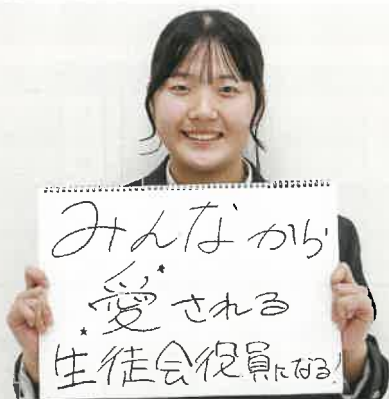 みんなから
愛される
生徒会役員になる!